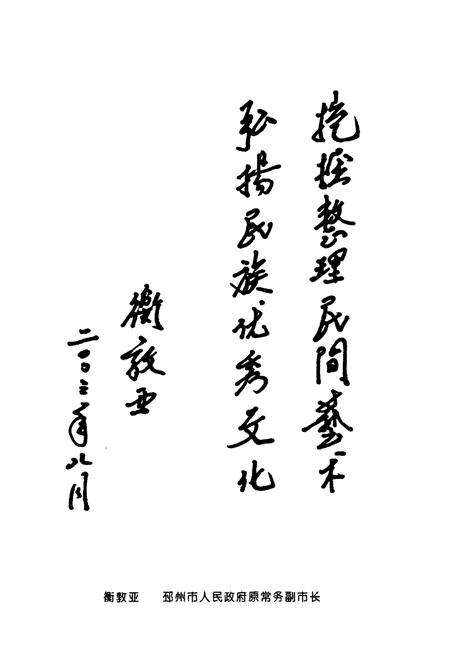 挖掘整理民间藝术
弘揚民族优秀文化
衡敦亚
二〇〇三年八月
衡敦亚 邳州市人民政府原常务副市长